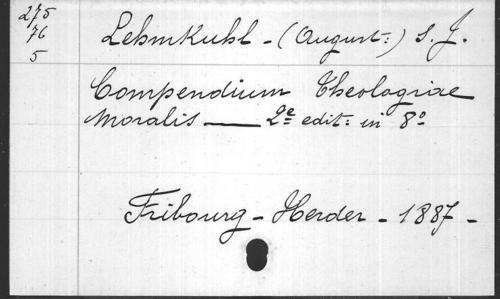 275
76
5
Lehmkuhl - (August:) S. J.
Compendium Theologiae
Moralis — 2e edit: in 8o
Fribourg - Herder - 1887 -